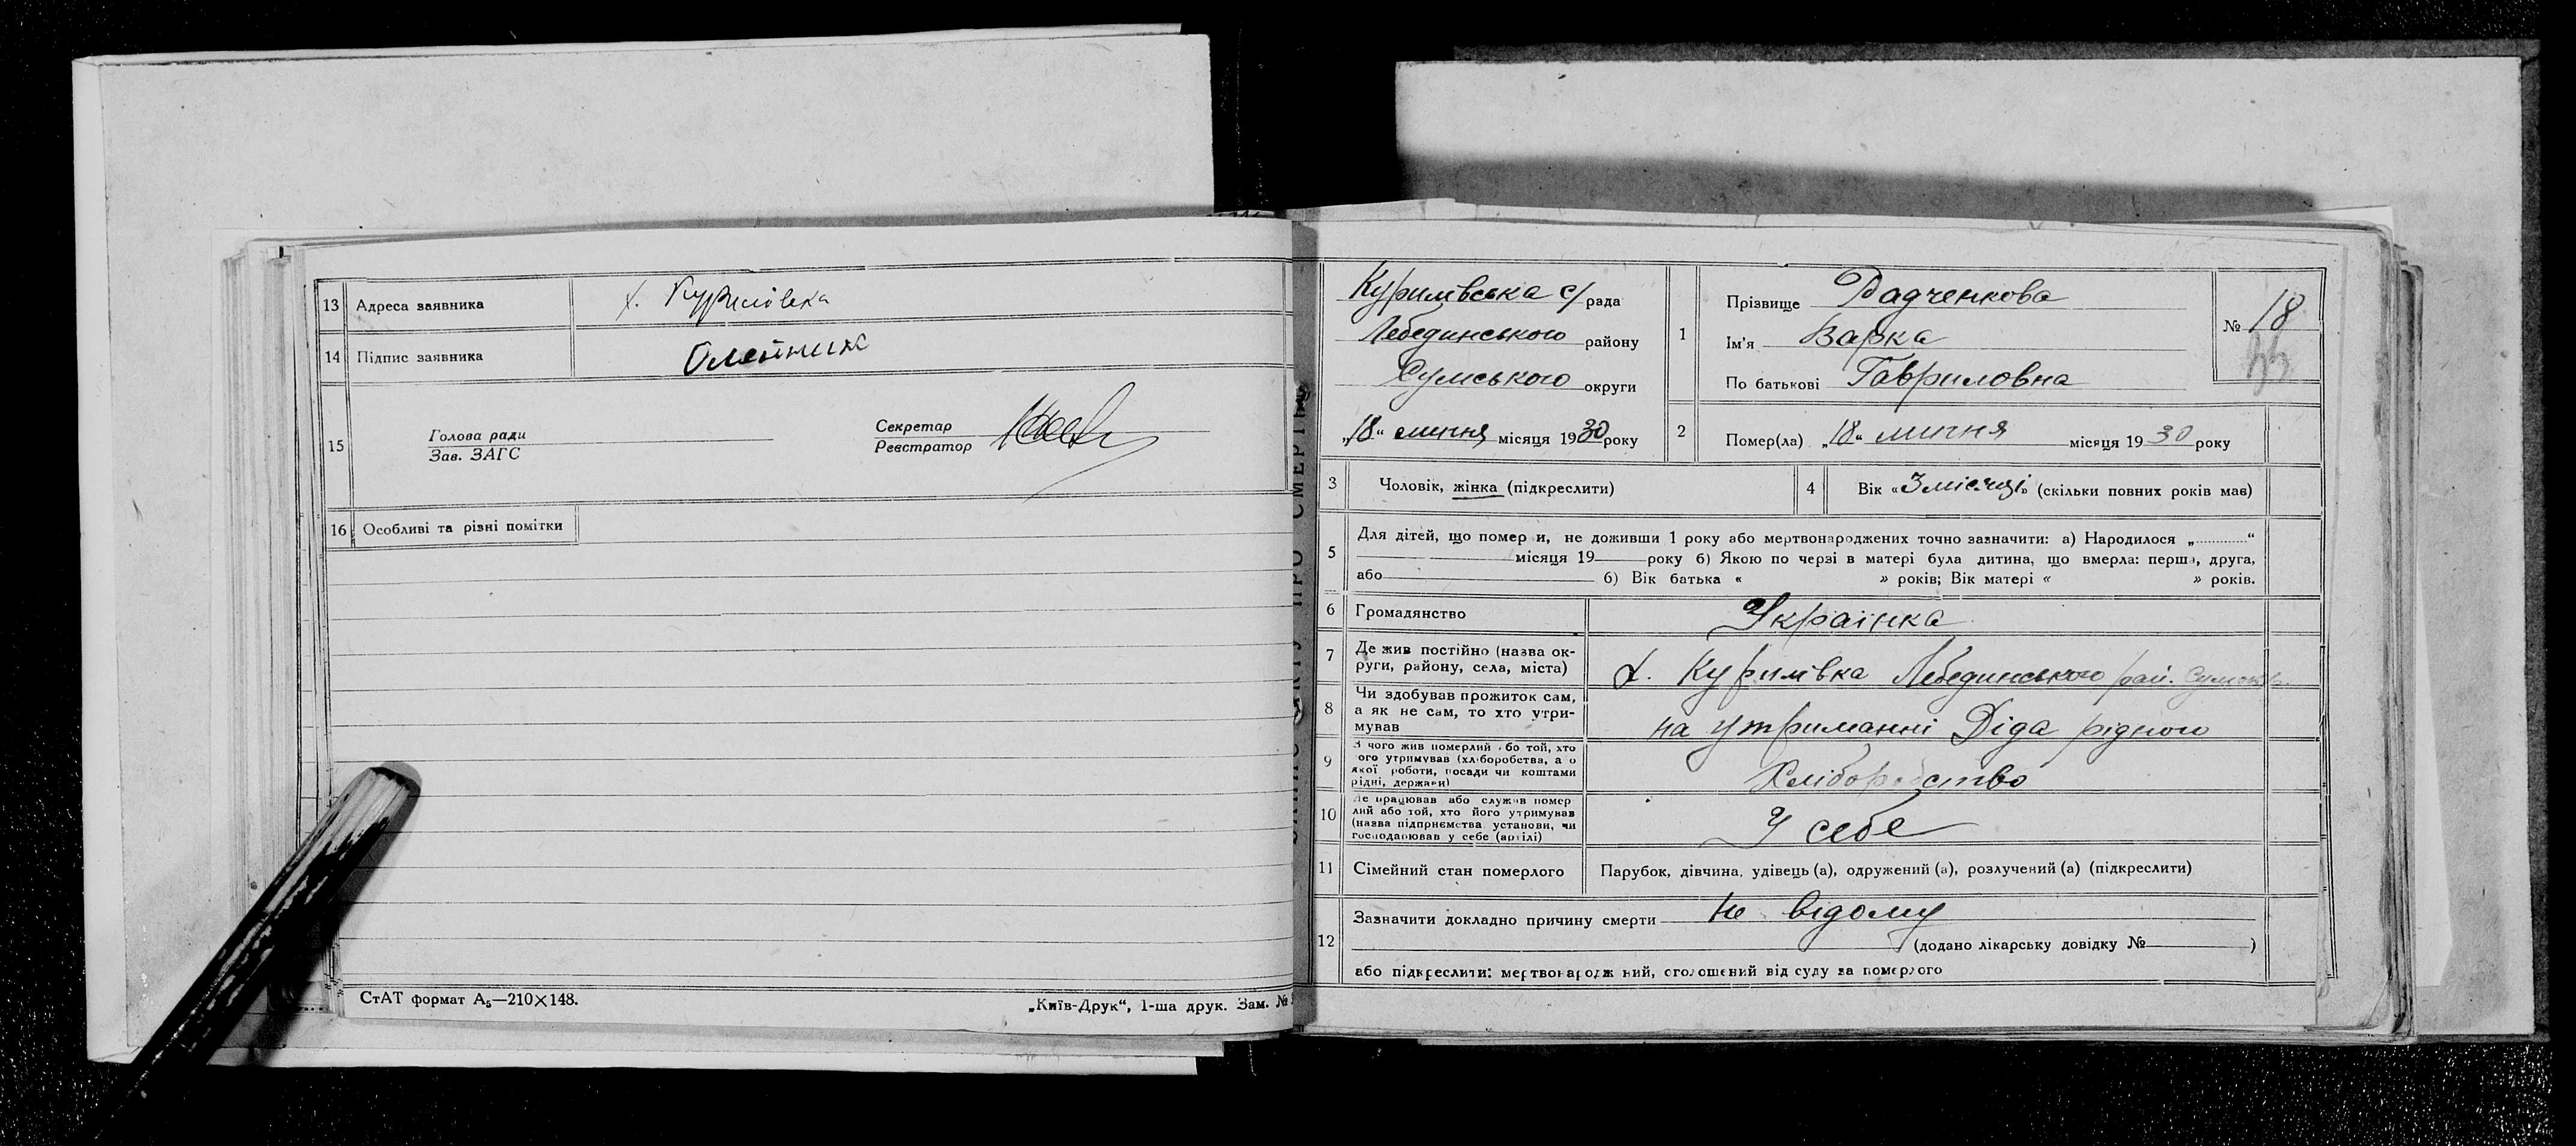 13 Адреса заявника х. Куриловка
14 Підпис заявника Олейник
15 Голова ради
Зав. ЗАГС
Секретар
Реєстратор
16 Особливі та різні помітки
СтАТ формат А₅—210×148.
„Київ-Друк“, 1-ша друк. Зам. №
Курилівська с/рада
Лебединського району
Сумського округи
„18“ липня місяця 1930 року
1 Прізвище Радченкова
Ім'я Варка
По батькові Гавриловна
№ 18
2 Помер(ла) „18“ липня місяця 1930 року
3 Чоловік, жінка (підкреслити)
4 Вік «3 місяці» (скільки повних років мав)
5 Для дітей, що помер и, не доживши 1 року або мертвонароджених точно зазначити: а) Народилося „............“
місяця 19 року б) Якою по черзі в матері була дитина, що вмерла: перша, друга,
або б) Вік батька « » років; Вік матері « » років.
6 Громадянство Українка
7 Де жив постійно (назва ок-
руги, району, села, міста) х. Курилівка Лебединського рай. Сумськ
8 Чи здобував прожиток сам,
а як не сам, то хто утри-
мував на утриманні Діда рідного
9 З чого жив померлий або той, хто
його утримував (хліборобства, або
якої роботи, посади чи коштами
рідні, держави) Хліборобство
10 Де працював або служив помер
лий або той, хто його утримував
(назва підприємства установи, чи
господарював у себе (артілі) У себе
11 Сімейний стан померлого Парубок, дівчина, удівець (а), одружений (а), розлучений (а) (підкреслити)
12 Зазначити докладно причину смерти Не відому
(додано лікарську довідку № )
або підкреслити: мертвонародж ний, оголошений від суду за померлого